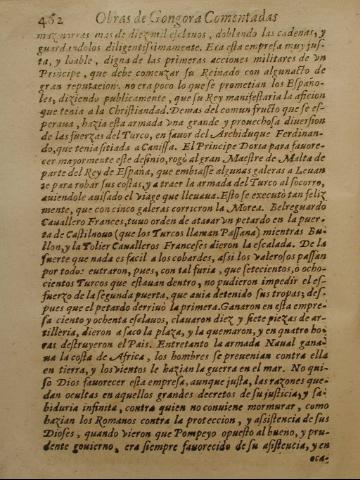 462 Obras de Gongora Comentadas
mazmorras mas de diez mil esclauos, doblando las cadenas, y
guardandolos diligentissimamente. Era esta empresa muy jus-
ta, y loable, digna de las primeras acciones militares de vn
Principe, que debe comenzar su Reinado con algun acto de
gran reputacion. no era poco lo que se prometian los Españo-
les, diziendo publicamente, que su Rey manifestaria la aficion
que tenia a la Christiandad. Demas del comun fructo que se es-
peraua, hazia esta armada vna grande y prouechosa diuersion
de las fuerzas del Turco, en fauor del Archiduque Ferdinan-
do, que tenia sitiada a Canissa. El Principe Doria para fauore-
cer mayormente este desinio, rogó al gran Maestre de Malta de
parte del Rey de España, que embiasse algunas galeras a Leuan
te para robar sus costas, y atraer la armada del Turco al socorro,
auiendole auisado el viage que lleuaua. Esto se executó tan feliz
mente, que con cinco galeras corrieron la Morea. Belreguardo
Cauallero Frances, tuuo orden de atacar vn petardo en la puer-
ta de Castilnouo (que los Turcos llaman Passaua) mientras Bu-
llon, y la Tolier Caualleros Franceses dieron la escalada. De la
suerte que nada es facil a los cobardes, assi los valerosos passan
por todo: entraron, pues, con tal furia, que setecientos, o ocho-
cientos Turcos que estauan dentro, no pudieron impedir el es-
fuerzo de la segunda puerta, que auia detenido sus tropas; des-
pues que el petardo derriuò la primera. Ganaron en esta empre-
sa ciento y ochenta esclauos, clauaron diez y siete piezas de ar-
tilleria, dieron a saco la plaza, y la quemaron, y en quatro ho-
ras destruyeron el Pais. Entretanto la armada Naual ganaua
la costa de Africa, los hombres se preuenian contra ella
en tierra, y los vientos le hazian la guerra en el mar. No qui-
so Dios fauorecer esta empresa, aunque justa, las razones que-
dan ocultas en aquellos grandes decretos de su justicia, y sa-
biduria infinita, contra quien no conuiene mormurar, como
hazian los Romanos contra la proteccion, y assistencia de sus
Dioses, quando vieron que Pompeyo opuesto al bueno, y pru-
dente gouierno, era siempre fauorecido de su asistencia, y en
oca-